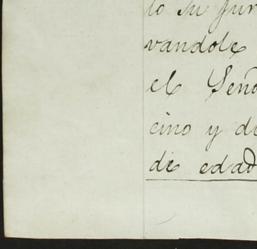 lo su jur
vandole
el Seño
cino y di
de edad